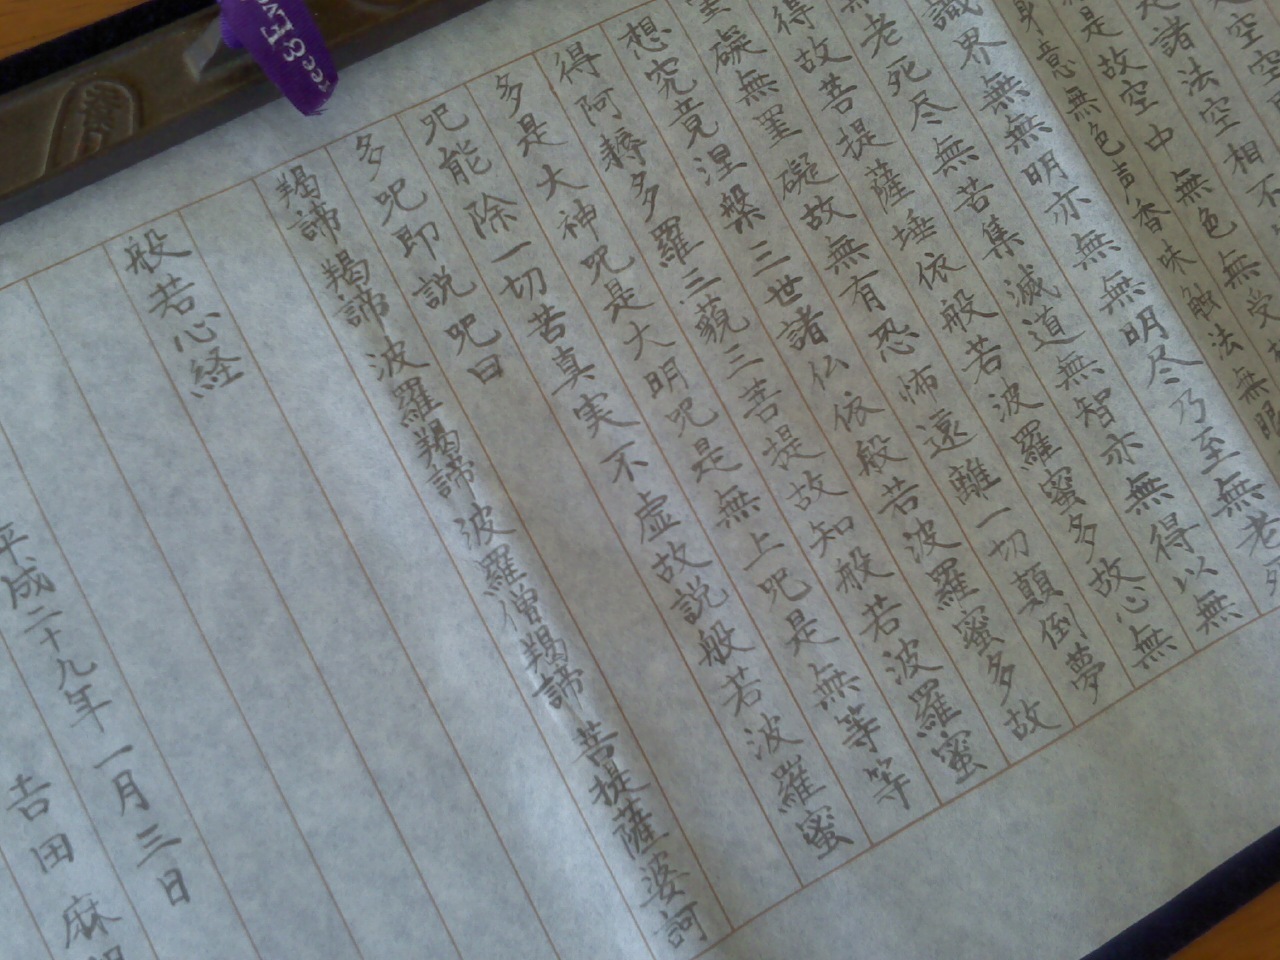 空空
是諸法空相不
是故空中無色無受
身意無色声香味触法無眼
識界無無明亦無無明尽乃至無老死
老死尽無苦集滅道無智亦無得以無
得故菩提薩埵依般若波羅蜜多故心無
礙無罣礙故無有恐怖遠離一切顛倒夢
想究竟涅槃三世諸仏依般若波羅蜜多故
得阿耨多羅三藐三菩提故知般若波羅蜜
多是大神呪是大明呪是無上呪是無等等
呪能除一切苦真実不虚故説般若波羅蜜
多呪即説呪曰
羯諦羯諦波羅羯諦波羅僧羯諦菩提薩婆訶
般若心経
平成二十九年一月三日
吉田麻